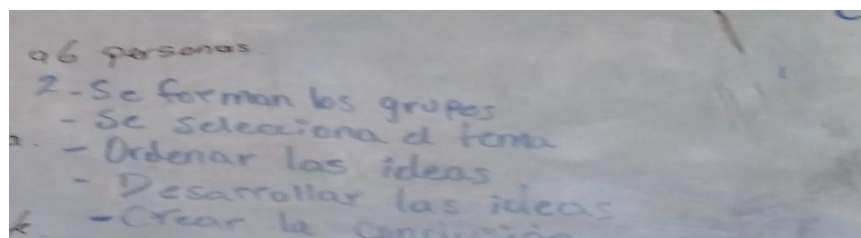 a 6 personas.
2-Se forman los grupos
- Se selecciona el tema
- Ordenar las ideas
- Desarrollar las ideas
- Crear la conclusión